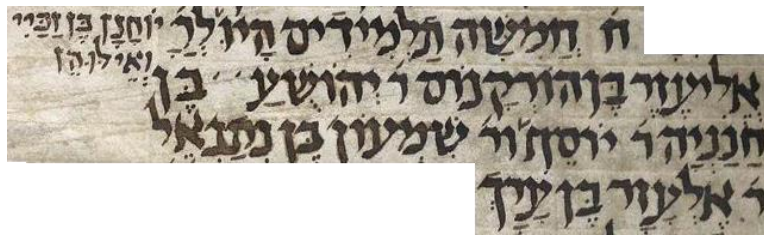 ח חֲמִשָּׁה תַלְמִידִים הָיוּ לְר׳ יוֹחָנָן בֶּן זַכַּיי
וְאֵילוּ הֵן
אֱלִיעֶזֶר בֶּן הוֹרְקָנוֹס ר׳ יְהוֹשֻׁעַ בֶּן
חֲנַנְיָה ר׳ יוֹסֵה ור׳ שִׁמְעוֹן בֶּן נְתַנְאֵל
ר׳ אֶלְעָזָר בֶּן עֲרָךְ